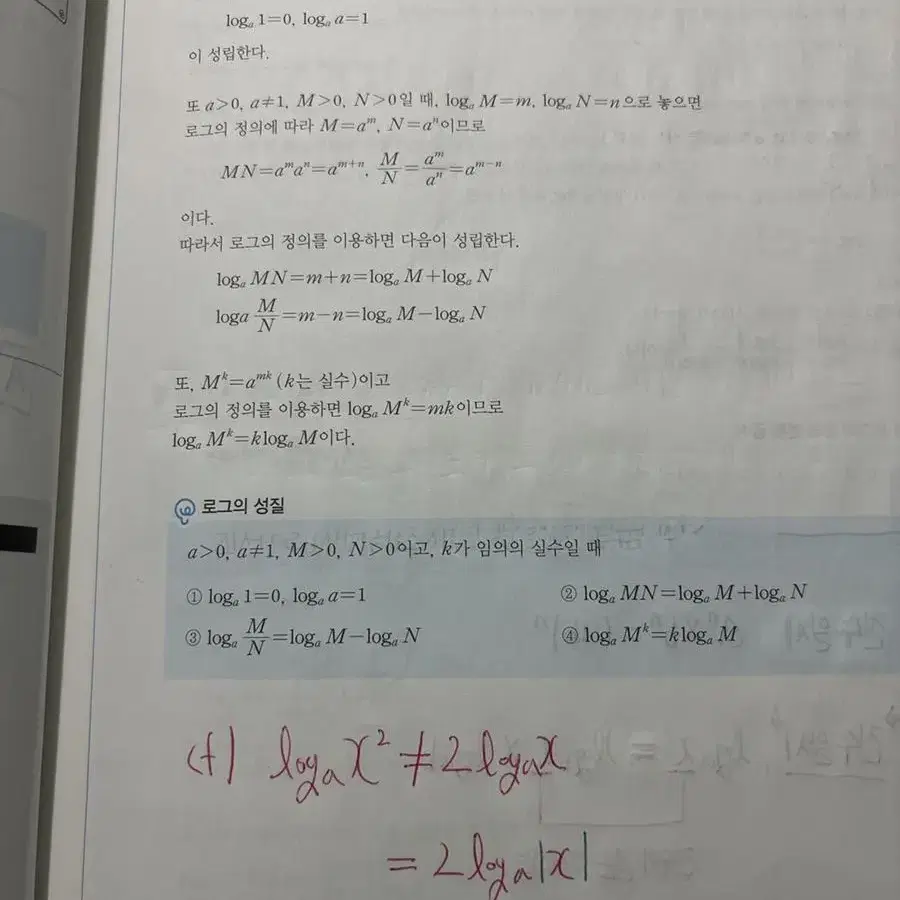 logₐ 1=0, logₐ a=1
이 성립한다.
또 a>0, a≠1, M>0, N>0일 때, logₐ M=m, logₐ N=n으로 놓으면
로그의 정의에 따라 M=aᵐ, N=aⁿ이므로
MN=aᵐaⁿ=aᵐ⁺ⁿ, M/N=aᵐ/aⁿ=aᵐ⁻ⁿ
이다.
따라서 로그의 정의를 이용하면 다음이 성립한다.
logₐ MN=m+n=logₐ M+logₐ N
loga M/N=m-n=logₐ M-logₐ N
또, Mᵏ=aᵐᵏ (k는 실수)이고
로그의 정의를 이용하면 logₐ Mᵏ=mk이므로
logₐ Mᵏ=klogₐ M이다.
로그의 성질
a>0, a≠1, M>0, N>0이고, k가 임의의 실수일 때
① logₐ 1=0, logₐ a=1 ② logₐ MN=logₐ M+logₐ N
③ logₐ M/N=logₐ M-logₐ N ④ logₐ Mᵏ=klogₐ M
logₐx² ≠ 2logₐx
= 2logₐ|x|